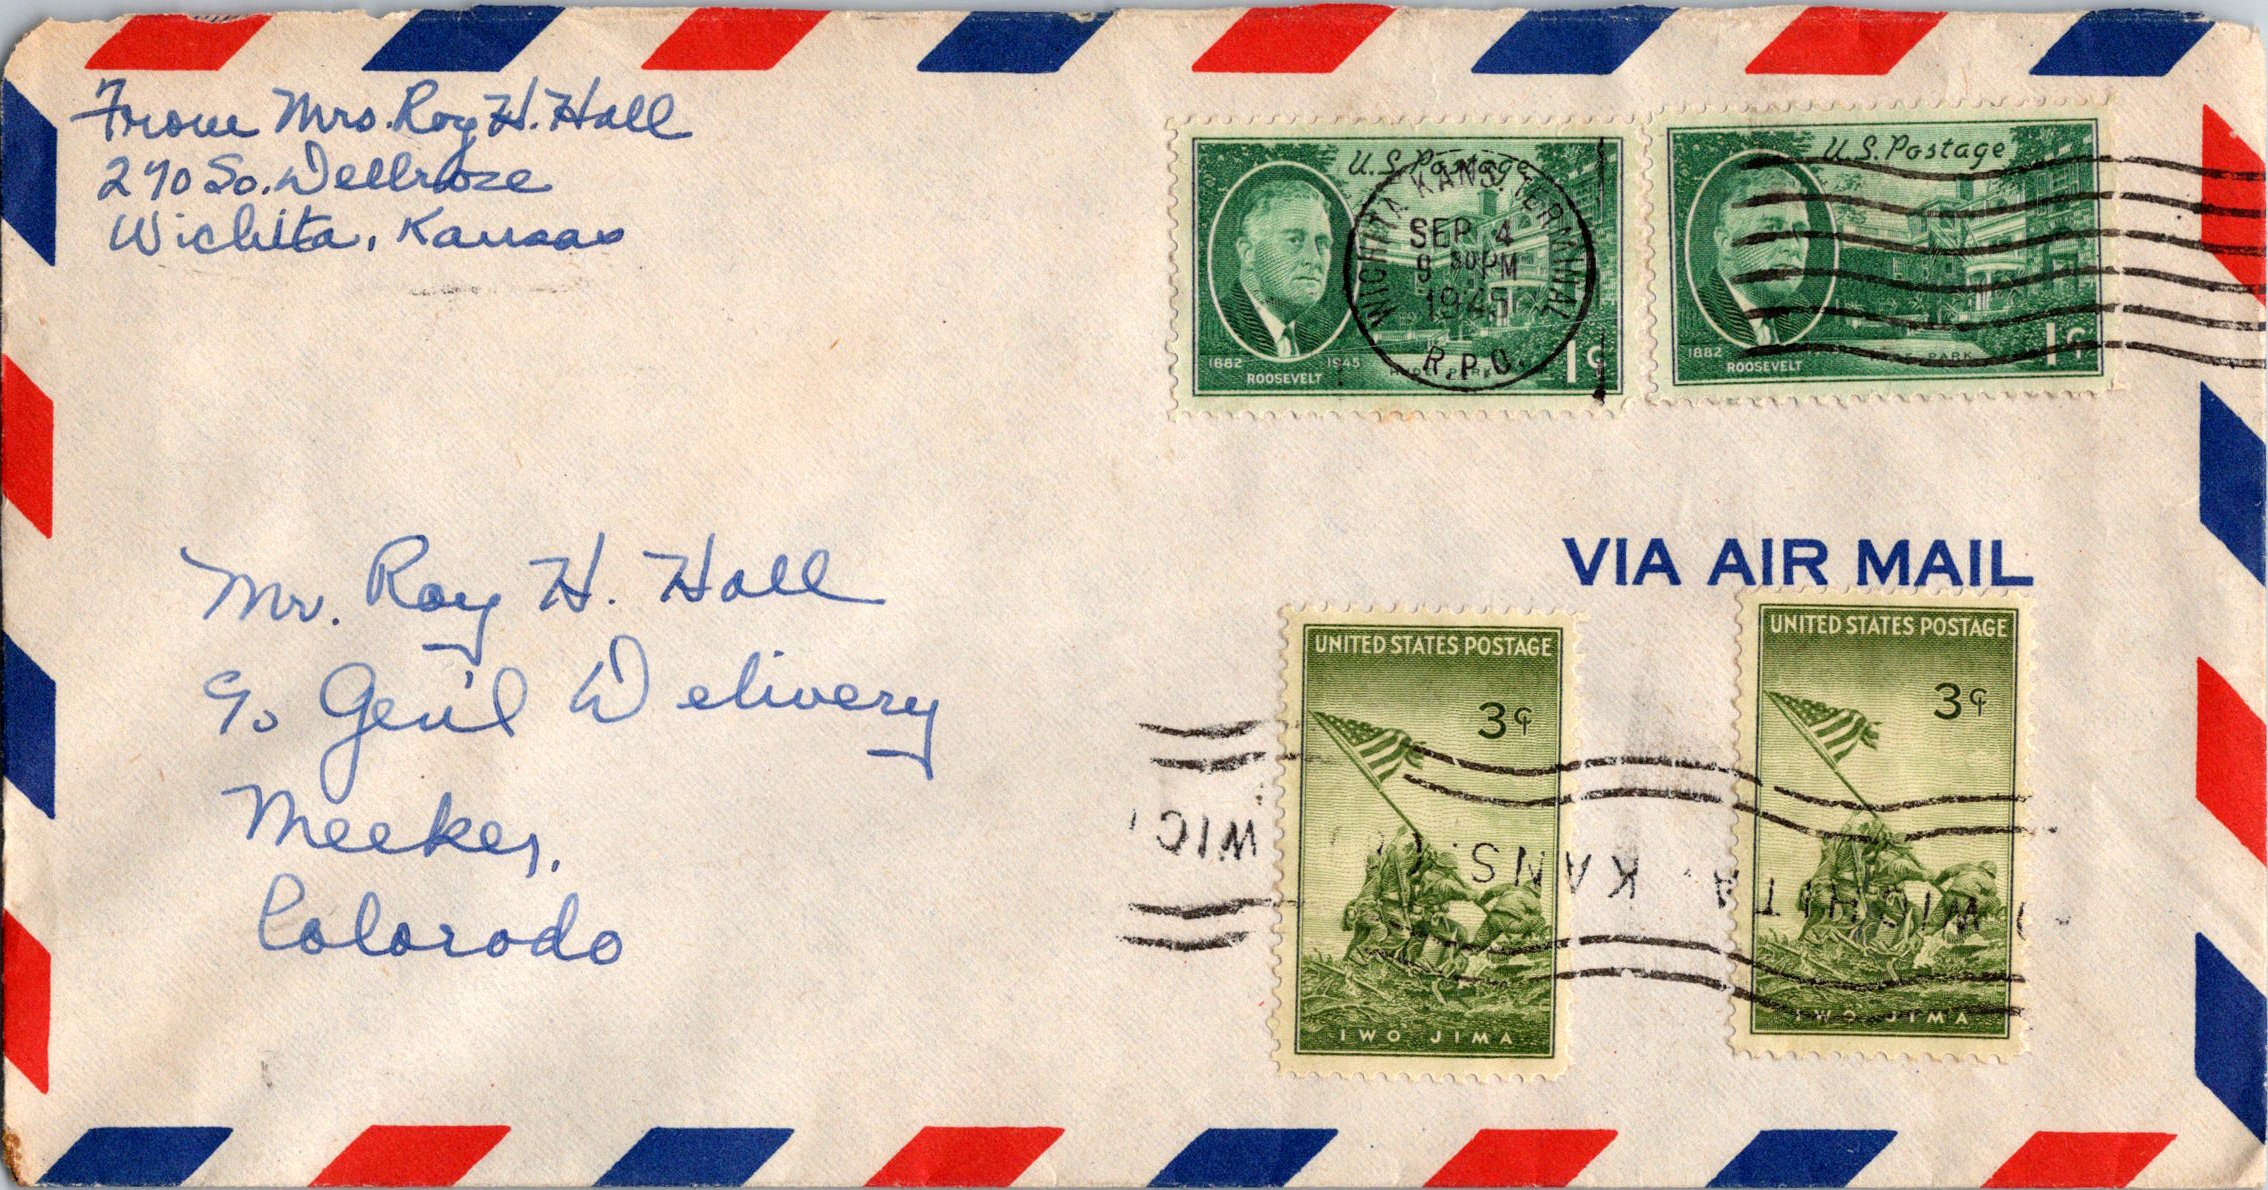 From Mrs. Roy H. Hall
270 So. Dellrose
Wichita, Kansas
U.S. Postage
1882 1945
ROOSEVELT
1¢
WICHITA KANS. TERMINAL
SEP 4
9 30 PM
1945
R.P.O.
U.S. Postage
1882
ROOSEVELT
PARK
1¢
VIA AIR MAIL
Mr. Roy H. Hall
c/o Gen'l Delivery
Meeker,
Colorado
UNITED STATES POSTAGE
3¢
IWO JIMA
UNITED STATES POSTAGE
3¢
IWO JIMA
WICHITA KANS.
WIC